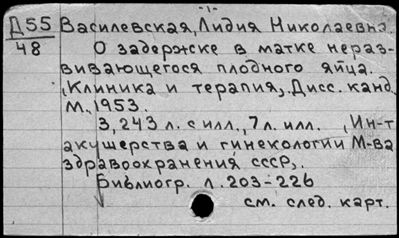 -1-
Д55 Василевская, Лидия Николаевна.
48 О задержке в матке нераз-
вивающегося плодного яйца.
(Клиника и терапия). Дисс. канд.
М., 1953.
3, 243 л. с илл., 7 л. илл. (Ин-т
акушерства и гинекологии М-ва
здравоохранения СССР).
Библиогр. л. 203-226
см. след. карт.